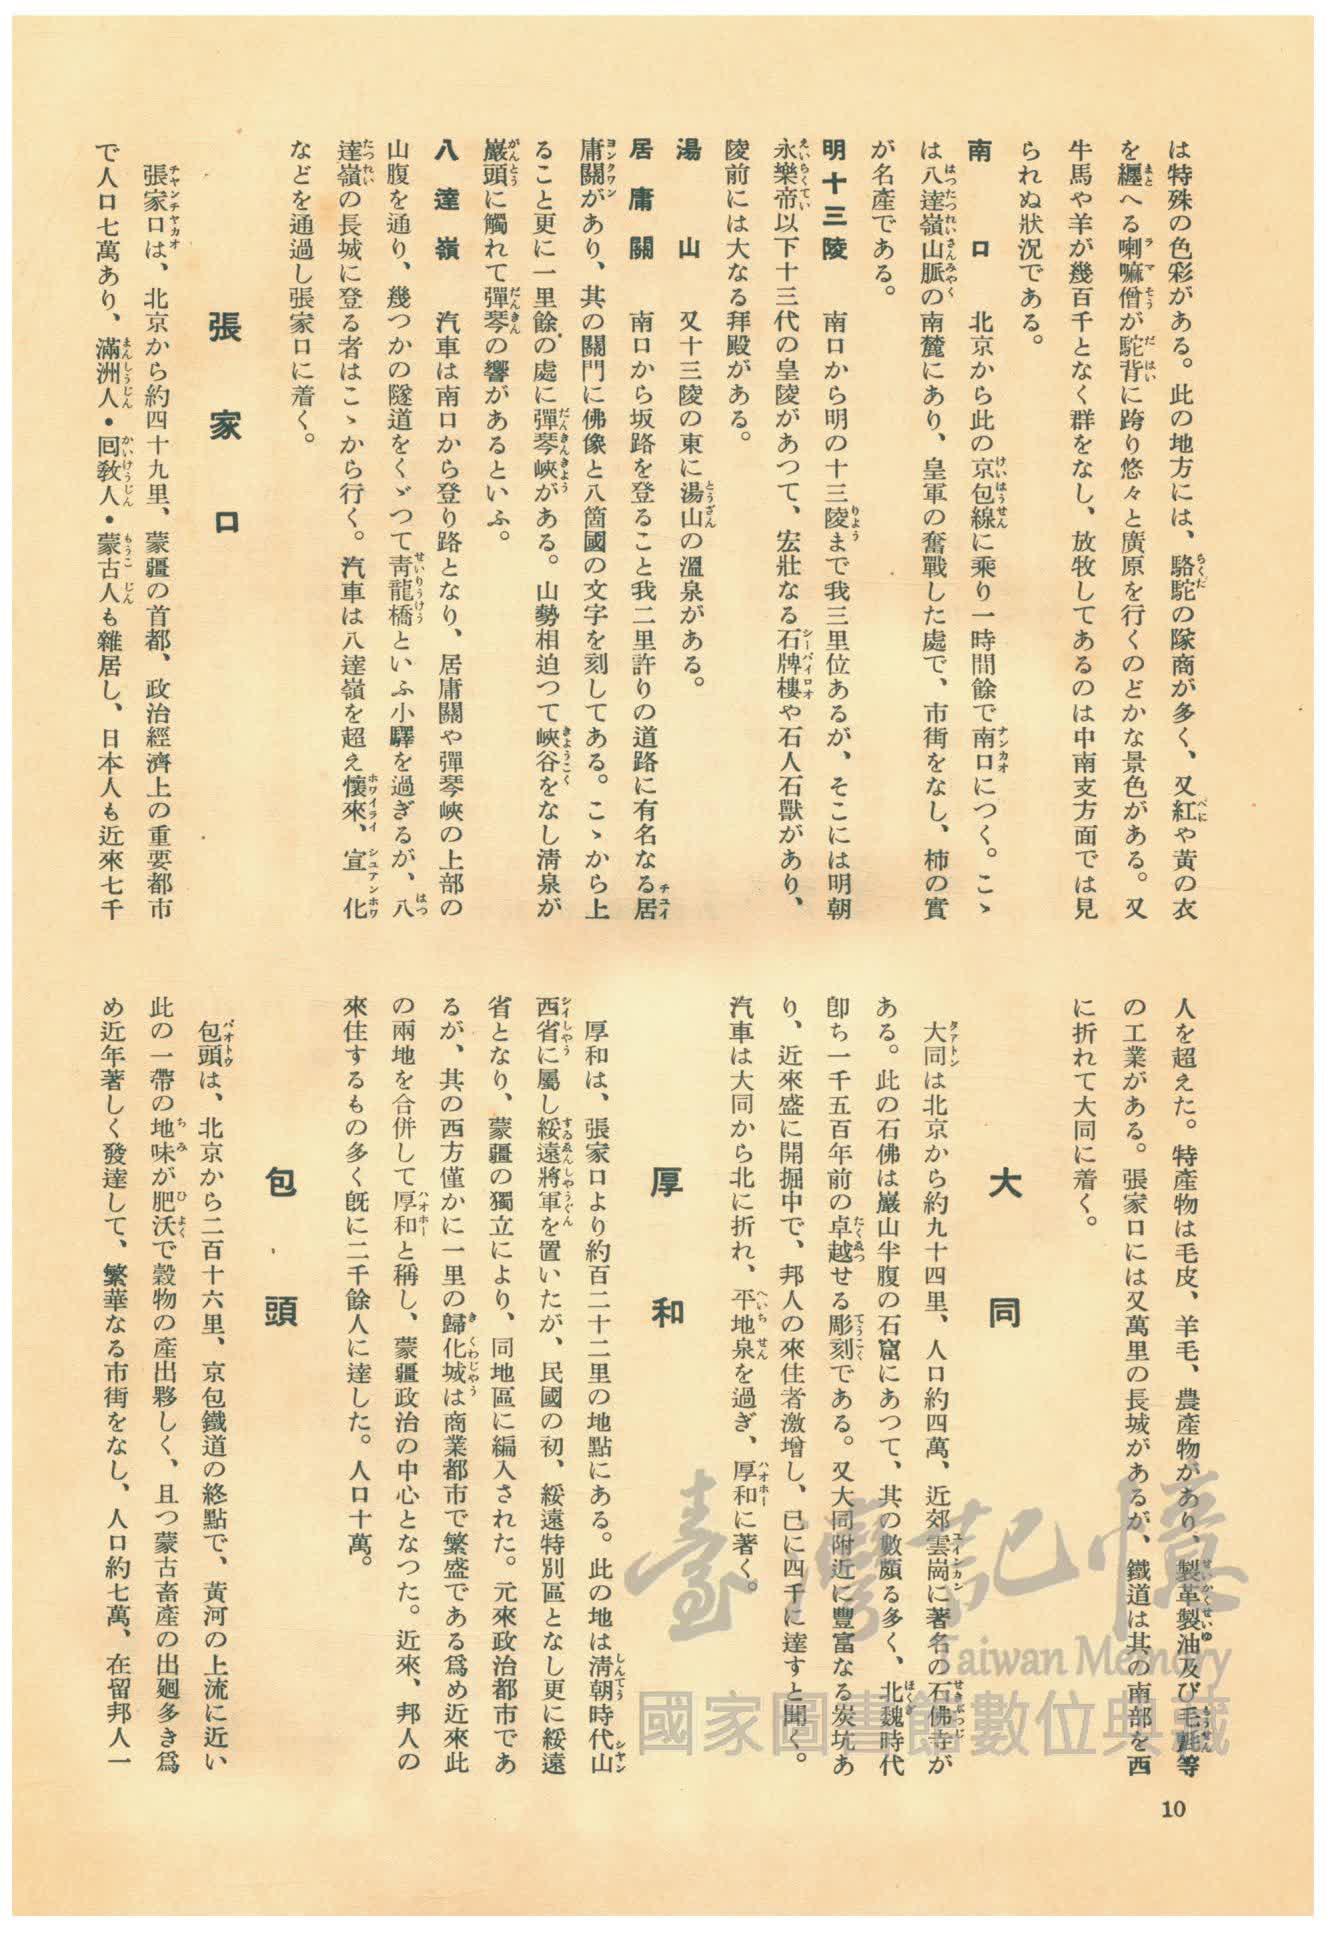 は特殊の色彩がある。此の地方には、駱駝の隊商が多く、又紅や黃の衣
を纒へる喇嘛僧が駝背に跨り悠々と廣原を行くのどかな景色がある。又
牛馬や羊が幾百千となく群をなし、放牧してあるのは中南支方面では見
られぬ狀況である。
南口 北京から此の京包線に乘り一時間餘で南口につく。こゝ
は八達嶺山脈の南麓にあり、皇軍の奮戰した處で、市街をなし、柿の實
が名產である。
明十三陵 南口から明の十三陵まで我三里位あるが、そこには明朝
永樂帝以下十三代の皇陵があつて、宏壯なる石牌樓や石人石獸があり、
陵前には大なる拜殿がある。
湯山 又十三陵の東に湯山の溫泉がある。
居庸關 南口から坂路を登ること我二里許りの道路に有名なる居
庸關があり、其の關門に佛像と八箇國の文字を刻してある。こゝから上
ること更に一里餘の處に彈琴峽がある。山勢相迫つて峽谷をなし淸泉が
巖頭に觸れて彈琴の響があるといふ。
八達嶺 汽車は南口から登り路となり、居庸關や彈琴峽の上部の
山腹を通り、幾つかの隧道をくゞつて靑龍橋といふ小驛を過ぎるが、八
達嶺の長城に登る者はこゝから行く。汽車は八達嶺を超え懷來、宣化
などを通過し張家口に着く。
張家口
張家口は、北京から約四十九里、蒙疆の首都、政治經濟上の重要都市
で人口七萬あり、滿洲人・囘敎人・蒙古人も雜居し、日本人も近來七千
人を超えた。特產物は毛皮、羊毛、農產物があり、製革製油及び毛氈等
の工業がある。張家口には又萬里の長城があるが、鐵道は其の南部を西
に折れて大同に着く。
大同
大同は北京から約九十四里、人口約四萬、近郊雲崗に著名の石佛寺が
ある。此の石佛は巖山半腹の石窟にあつて、其の數頗る多く、北魏時代
卽ち一千五百年前の卓越せる彫刻である。又大同附近に豐富なる炭坑あ
り、近來盛に開掘中で、邦人の來住者激增し、已に四千に達すと聞く。
汽車は大同から北に折れ、平地泉を過ぎ、厚和に著く。
厚和
厚和は、張家口より約百二十二里の地點にある。此の地は淸朝時代山
西省に屬し綏遠將軍を置いたが、民國の初、綏遠特別區となし更に綏遠
省となり、蒙疆の獨立により、同地區に編入された。元來政治都市であ
るが、其の西方僅かに一里の歸化城は商業都市で繁盛である爲め近來此
の兩地を合併して厚和と稱し、蒙疆政治の中心となつた。近來、邦人の
來住するもの多く旣に二千餘人に達した。人口十萬。
包頭
包頭は、北京から二百十六里、京包鐵道の終點で、黃河の上流に近い
此の一帶の地味が肥沃で穀物の產出夥しく、且つ蒙古畜產の出廻多き爲
め近年著しく發達して、繁華なる市街をなし、人口約七萬、在留邦人一
10
臺灣記憶
Taiwan Memory
國家圖書館數位典藏